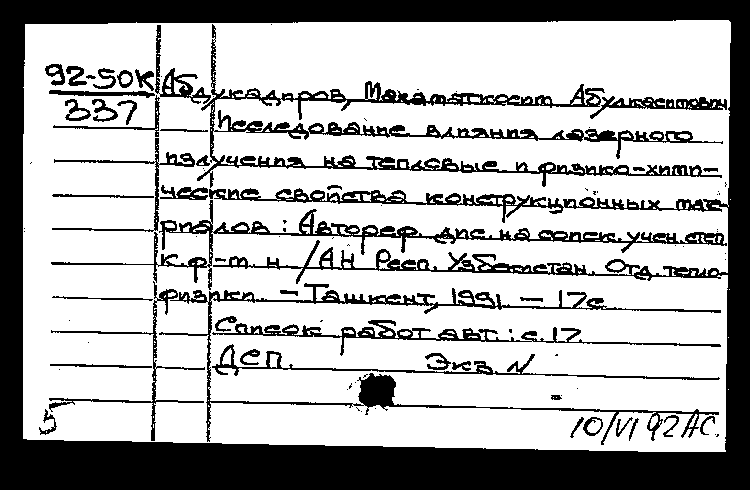 92-50К
337
Абдукадиров, Махаматкосим Абулкасимович
Исследование влияния лазерного
излучения на тепловые и физико-хими-
ческие свойства конструкционных мате-
риалов : Автореф. дис. на соиск. учен. степ.
к.ф-м. н. / АН Респ. Узбекистан. Отд. тепло-
физики. - Ташкент, 1991. - 17 с
Список работ авт.: с. 17.
ДСП. Экз. N
5 10/VI 92 АС.